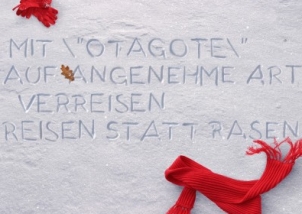 MIT \"OTAGOTE\"
AUF ANGENEHME ART
VERREISEN
REISEN STATT RASEN